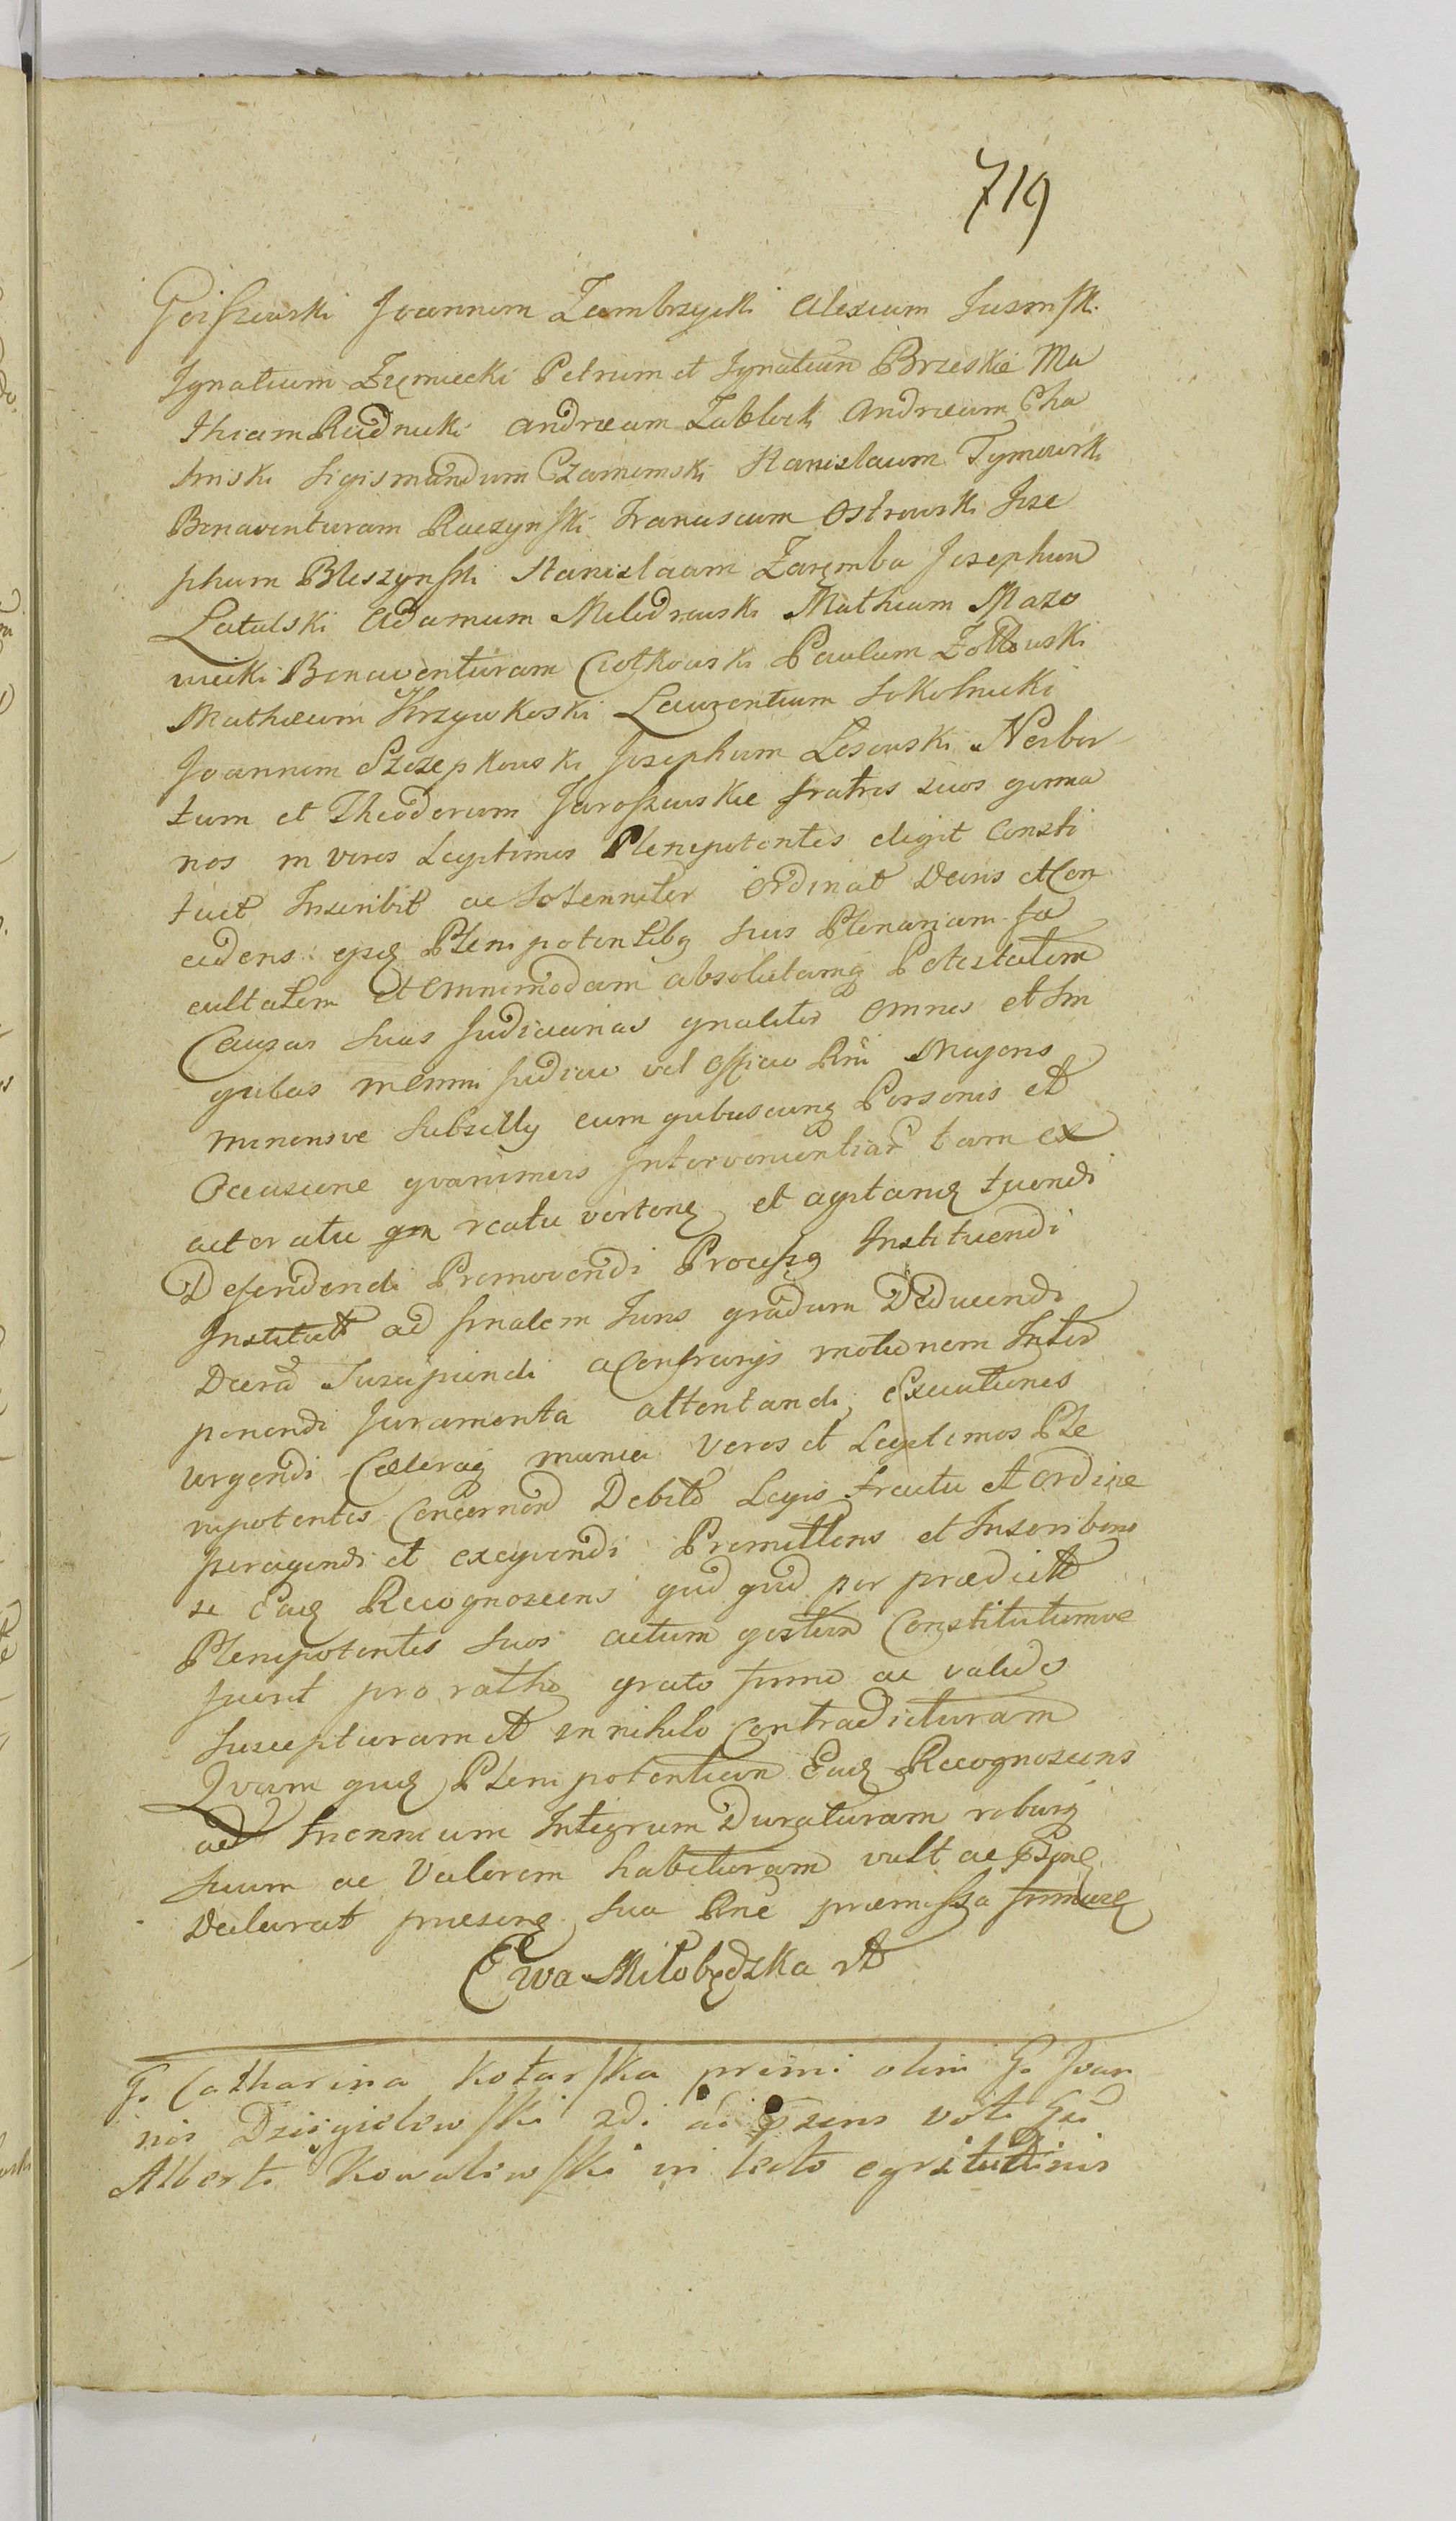 719
Goiszewski Joannem Zambrzycki Alexium Juzinski
Ignatium Zręmiecki Petrum et Ignatium Brzeskie Ma
thiam Rudnicki Andream Zablocki Andream Cha
Sigismundum Czarnomski Stanislaum Tymowski
Bonaventuram Raczynski Franciscum Ostrowski Jose
phum Bleszynski Stanislaum Zaręmba Josephum
Latalski Adamum Mlodzowski Mathium Mazo
wiecki Bonaventuram Ciołkowski Paulum Zołtowski
Mathæum Krzywkoski Laurentium Sokolnicki
Joannem Szczepkowski Josephum Losowski Norber
tum et Theodorum Jaroszewskie fratres suos germa
nos in veros Legitimos Plenipotentes elegit Consti
tuit Inscribit ac Solenniter Ordinat Dans et Con
cedens ejsq Plenipotentibq suis Plenariam fa
cultatem et Omnimodam absolutamq Potestatem
Causas suas Judiciarias gnaliter Omnes et Sin
gulas in Omni Judicio vel Officio Rni Majoris
Minorisve Subsellÿ cum quibuscunq Personis et
Occasione qvarumvis Interveniential tam ex
actoratu qm reatu verten et agitan tuendi
Defendendi Promovendi Processq Instituendi
Institutt ad finalem Juris gradum Deducendi
Decrā Suscipiendi a Contrarÿs motionem Inter
ponendi Juramenta attentandi Executiones
urgendi Cæteraq munia veros et Legitimos Ple
nipotentes Concernen Debito Legis tractu et Ordine
peragendi et exeqvendi Promittens et Inscribens
se Eadē Recognoscens quidqvid per prædictt
Plenipotentes suos actum gestum Constitutumve
fuerit pro ratho grato firmo ac valido
Suscepturam et in nihilo Contradicturam
Qvam quidē Plenipotentiam Eadē Recognoscens
ad Triennium Integrum Duraturam roburq
suum ac Valorem habituram vult ac
Declarat præsenē sua Rne præmissa
Ewa Miłobędzka
G. Catharina Kotarska primi olim G. Joan
nis Dzięgielewski 2di ac pzens voti Gsi
Alberti Kowalewski in lecto egritudinis